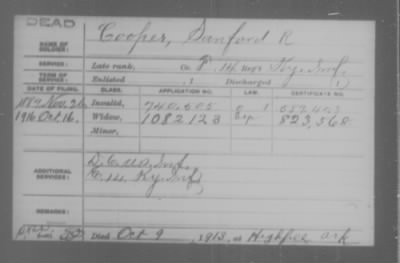 DEAD
NAME OF SOLDIER: Cooper, Sanford R
SERVICE: Late rank, Co. F. 14 Ky. Inf.
TERM OF SERVICE: Enlisted , 1 Discharged , 1
DATE OF FILING. CLASS. APPLICATION NO. LAW. CERTIFICATE NO.
1889 Nov. Invalid, 740,605
1916 Oct. 16. Widow, 1082123 823,568
Minor,
ADDITIONAL SERVICES: Inf.
14 Ky. Inf.
REMARKS:
Died Oct 9, 1913, at Ark